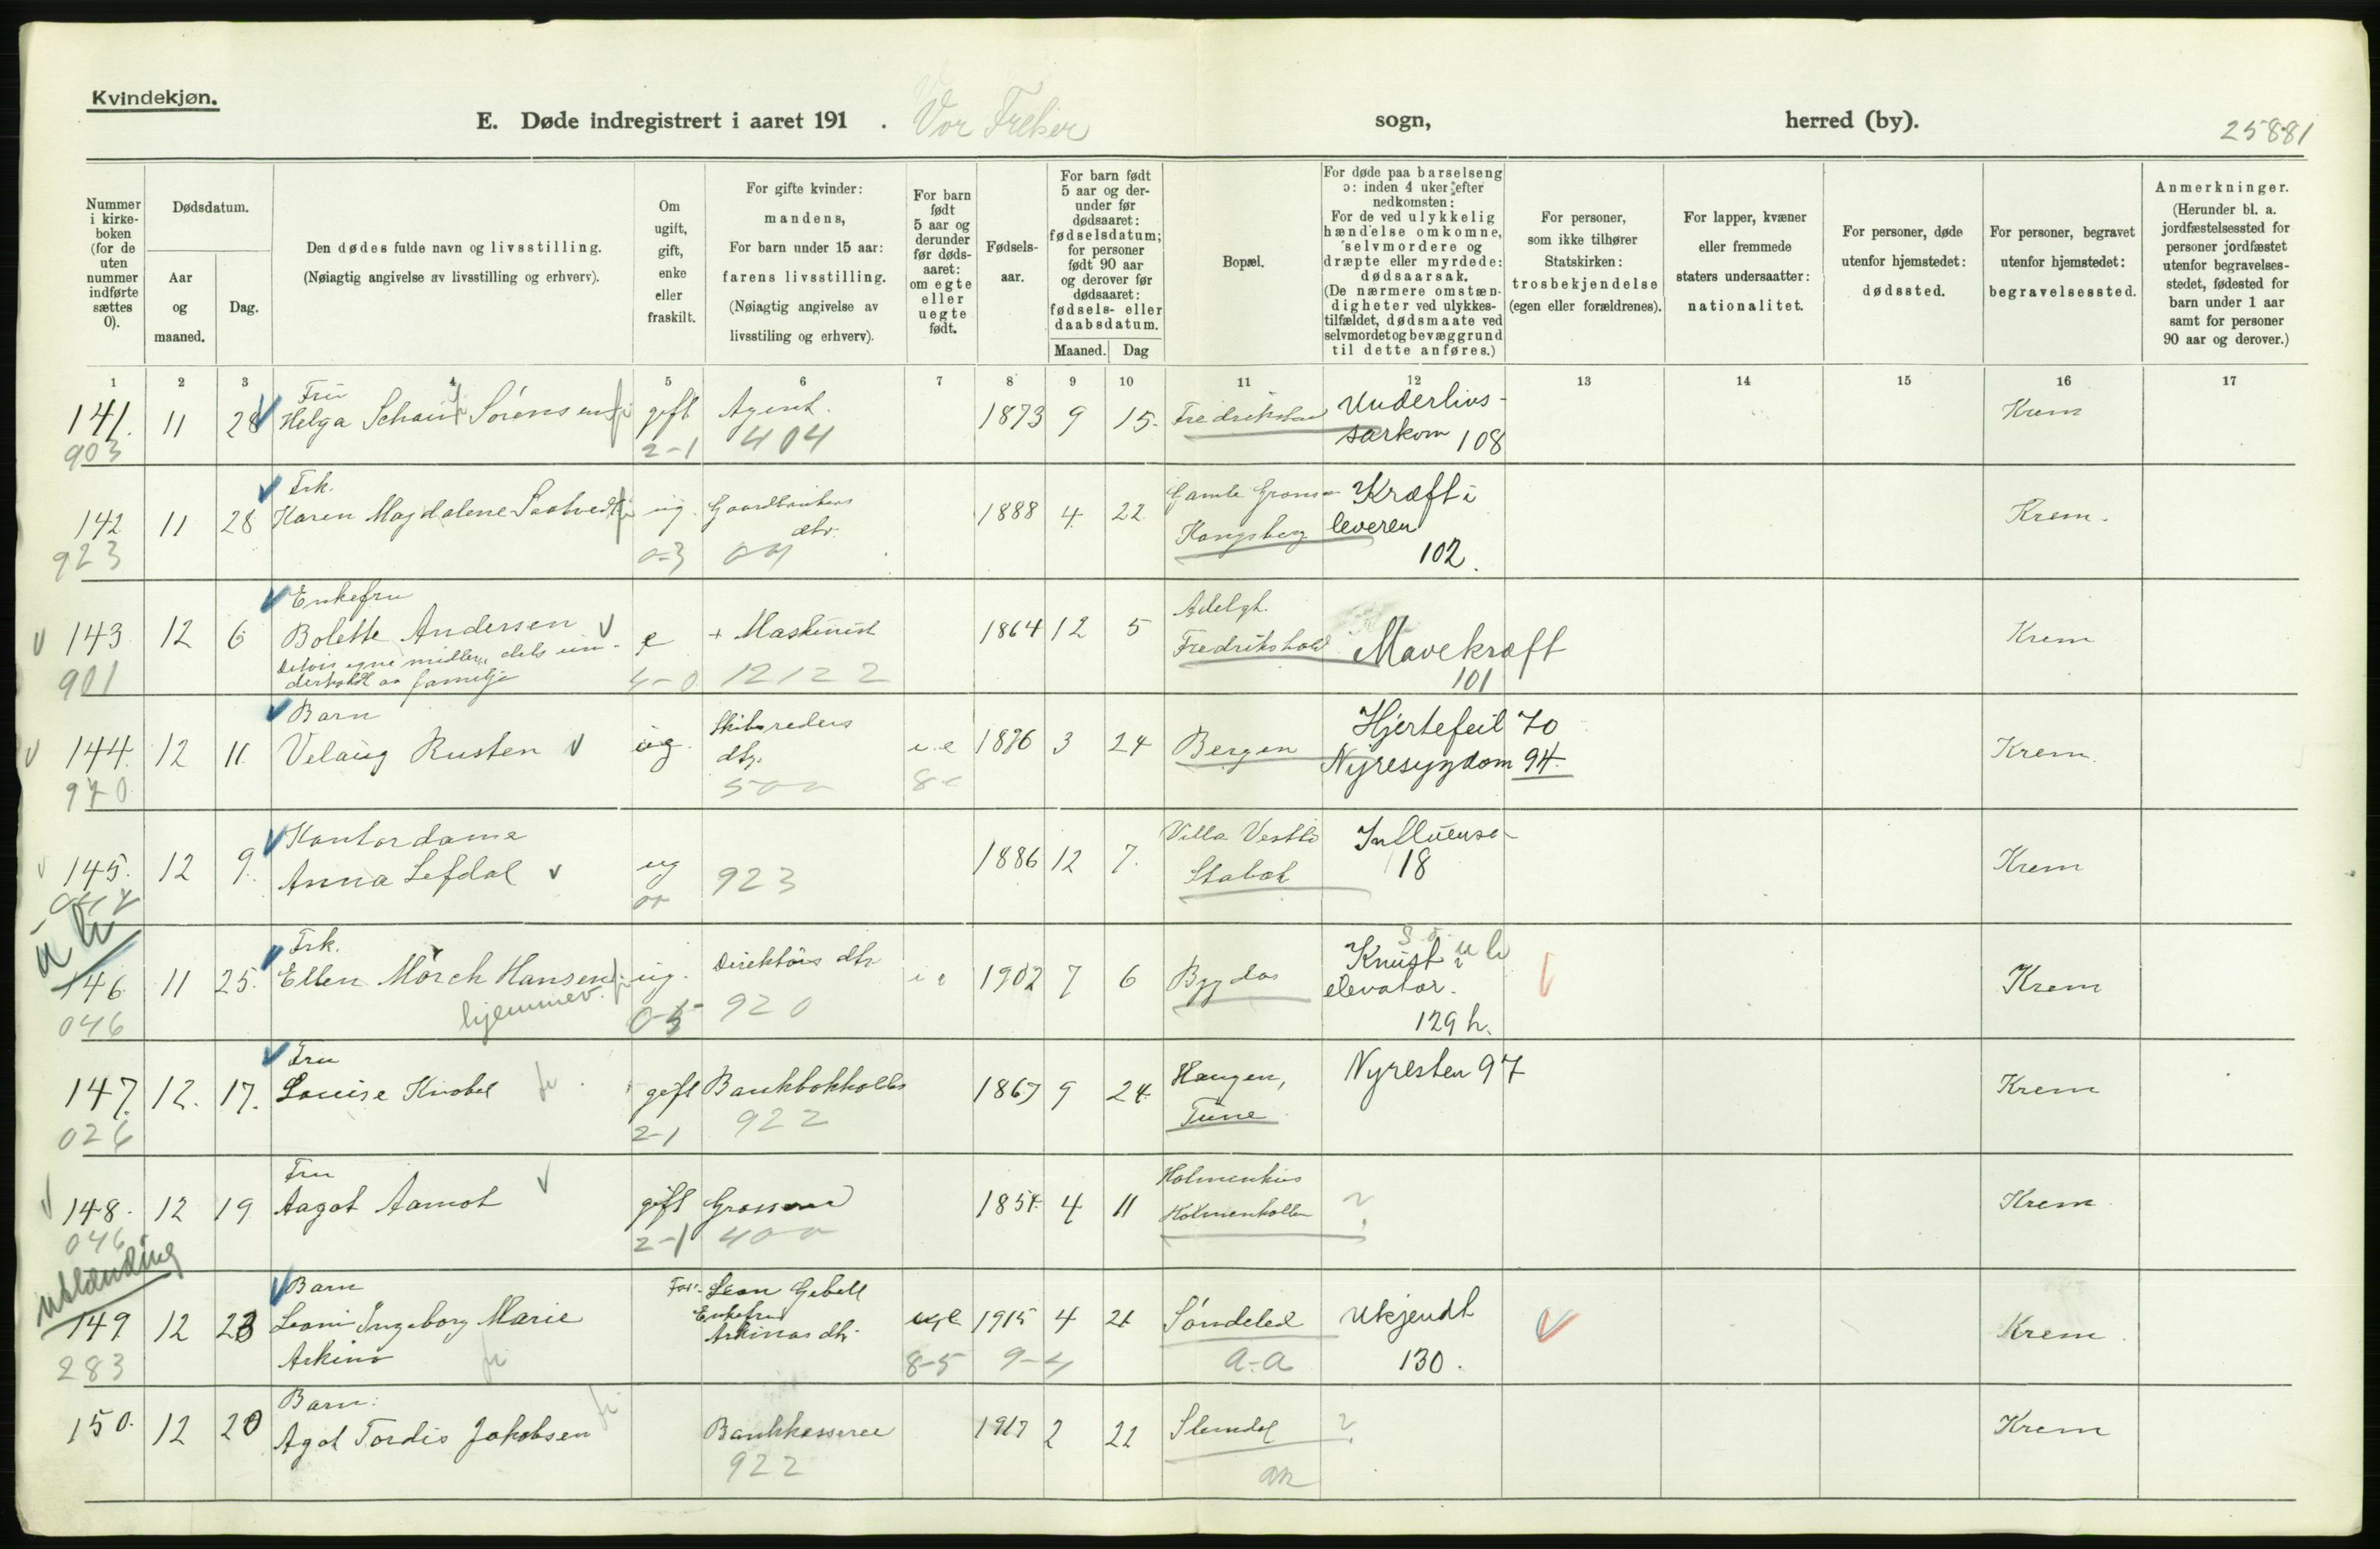 Kvindekjøn.
E. Døde indregistrert i aaret 191 . Vor Frelser sogn, herred (by). 25881
Nummer i kirkeboken (for de uten nummer indførte sættes 0).
Dødsdatum.
Aar og maaned.
Dag.
Den dødes fulde navn og livsstilling.
(Nøiagtig angivelse av livsstilling og erhverv).
Om ugift, gift, enke eller fraskilt.
For gifte kvinder: mandens,
For barn under 15 aar: farens livsstilling.
(Nøiagtig angivelse av livsstiling og erhverv).
For barn født 5 aar og derunder før dødsaaret: om egte eller uegte født.
Fødselsaar.
For barn født 5 aar og derunder før dødsaaret: fødselsdatum; for personer født 90 aar og derover før dødsaaret: fødsels- eller daabsdatum.
Maaned. Dag
Bopæl.
For døde paa barselseng ɔ: inden 4 uker efter nedkomsten:
For de ved ulykkelig hændelse omkomne, selvmordere og dræpte eller myrdede: dødsaarsak.
(De nærmere omstændigheter ved ulykkestilfældet, dødsmaate ved selvmordet og bevæggrund til dette anføres.)
For personer, som ikke tilhører Statskirken: trosbekjendelse (egen eller forældrenes).
For lapper, kvæner eller fremmede staters undersaatter: nationalitet.
For personer, døde utenfor hjemstedet: dødssted.
For personer, begravet utenfor hjemstedet: begravelsessted.
Anmerkninger.
(Herunder bl. a. jordfæstelsessted for personer jordfæstet utenfor begravelsesstedet, fødested for barn under 1 aar samt for personer 90 aar og derover.)
1 2 3 4 5 6 7 8 9 10 11 12 13 14 15 16 17
Fru Underlivs-
141. 11 28 Helga Sørensen gift Agent. 1873 9 15. Fredrikstad sarkom 108 Krem
903 2-1 404
Frk. Kræft i
142 11 28 Karen Magdalene ug. Gaardbrukers dtr. 1888 4 22 Gamle Kongsberg leveren 102. Krem.
923 0-3
Enkefru Adelgt.
143 12 6 Bolette Andersen e + Maskinist 1864 12 5 Fredrikshald Mavekræft 101 Krem
Delvis egne midler, dels un-
derholdt av familje
901 4-0 12122
Barn Skibsreders Hjertefeil 70
144. 12 11. Velaug Rusten ug. dtr. 3 24 Bergen Nyresygdom 94. Krem.
970 500
Kontordame Villa Influensa
145. 12 9. Anna Lefdal ug 923 1886 12 7. Stabæk 18 Krem
Frk. Direktørs dtr Knust i
146 11 25. Ellen Mörch Hansen ug. 1902 7 6 Bygdø elevator. Krem
hjemmev.
046 0-5 920 129 h.
Fru Haugen, Nyresten 97
147. 12. 17. Louise Knobel gift Bankbokholder 1867 9 24 Tune Krem
026 2-1 922
Fru Holmenhus
148. 12 19 Aagot Aamot gift Grosserer 1854 4 11 Holmenkollen ? Krem
046 2-1 400
utlænding
Barn Far: Leon Gebell
149 12 23 Leoni Ingeborg Marie Enkefru uge 1915 4 21 Søndeled Ukjendt Krem
Askino dtr.
283 8-5 9-4 a-a 130.
Barn:
150. 12 20 Agot Tordis Jakobsen Bankkasserer 1917 2 22 Slemdal ? Krem
922